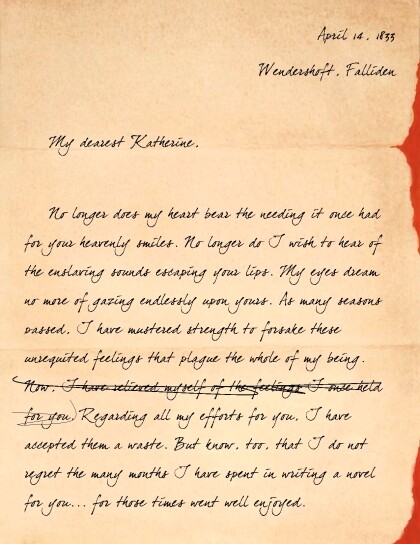 April 14, 1833
Wendershoft, Falliden
My dearest Katherine,
No longer does my heart bear the needing it once had
for your heavenly smiles. No longer do I wish to hear of
the enslaving sounds escaping your lips. My eyes dream
no more of gazing endlessly upon yours. As many seasons
passed, I have mustered strength to forsake these
unrequited feelings that plague the whole of my being.
Now, I have relieved myself of the feelings I once held
for you. Regarding all my efforts for you, I have
accepted them a waste. But know, too, that I do not
regret the many months I have spent in writing a novel
for you... for those times went well enjoyed.